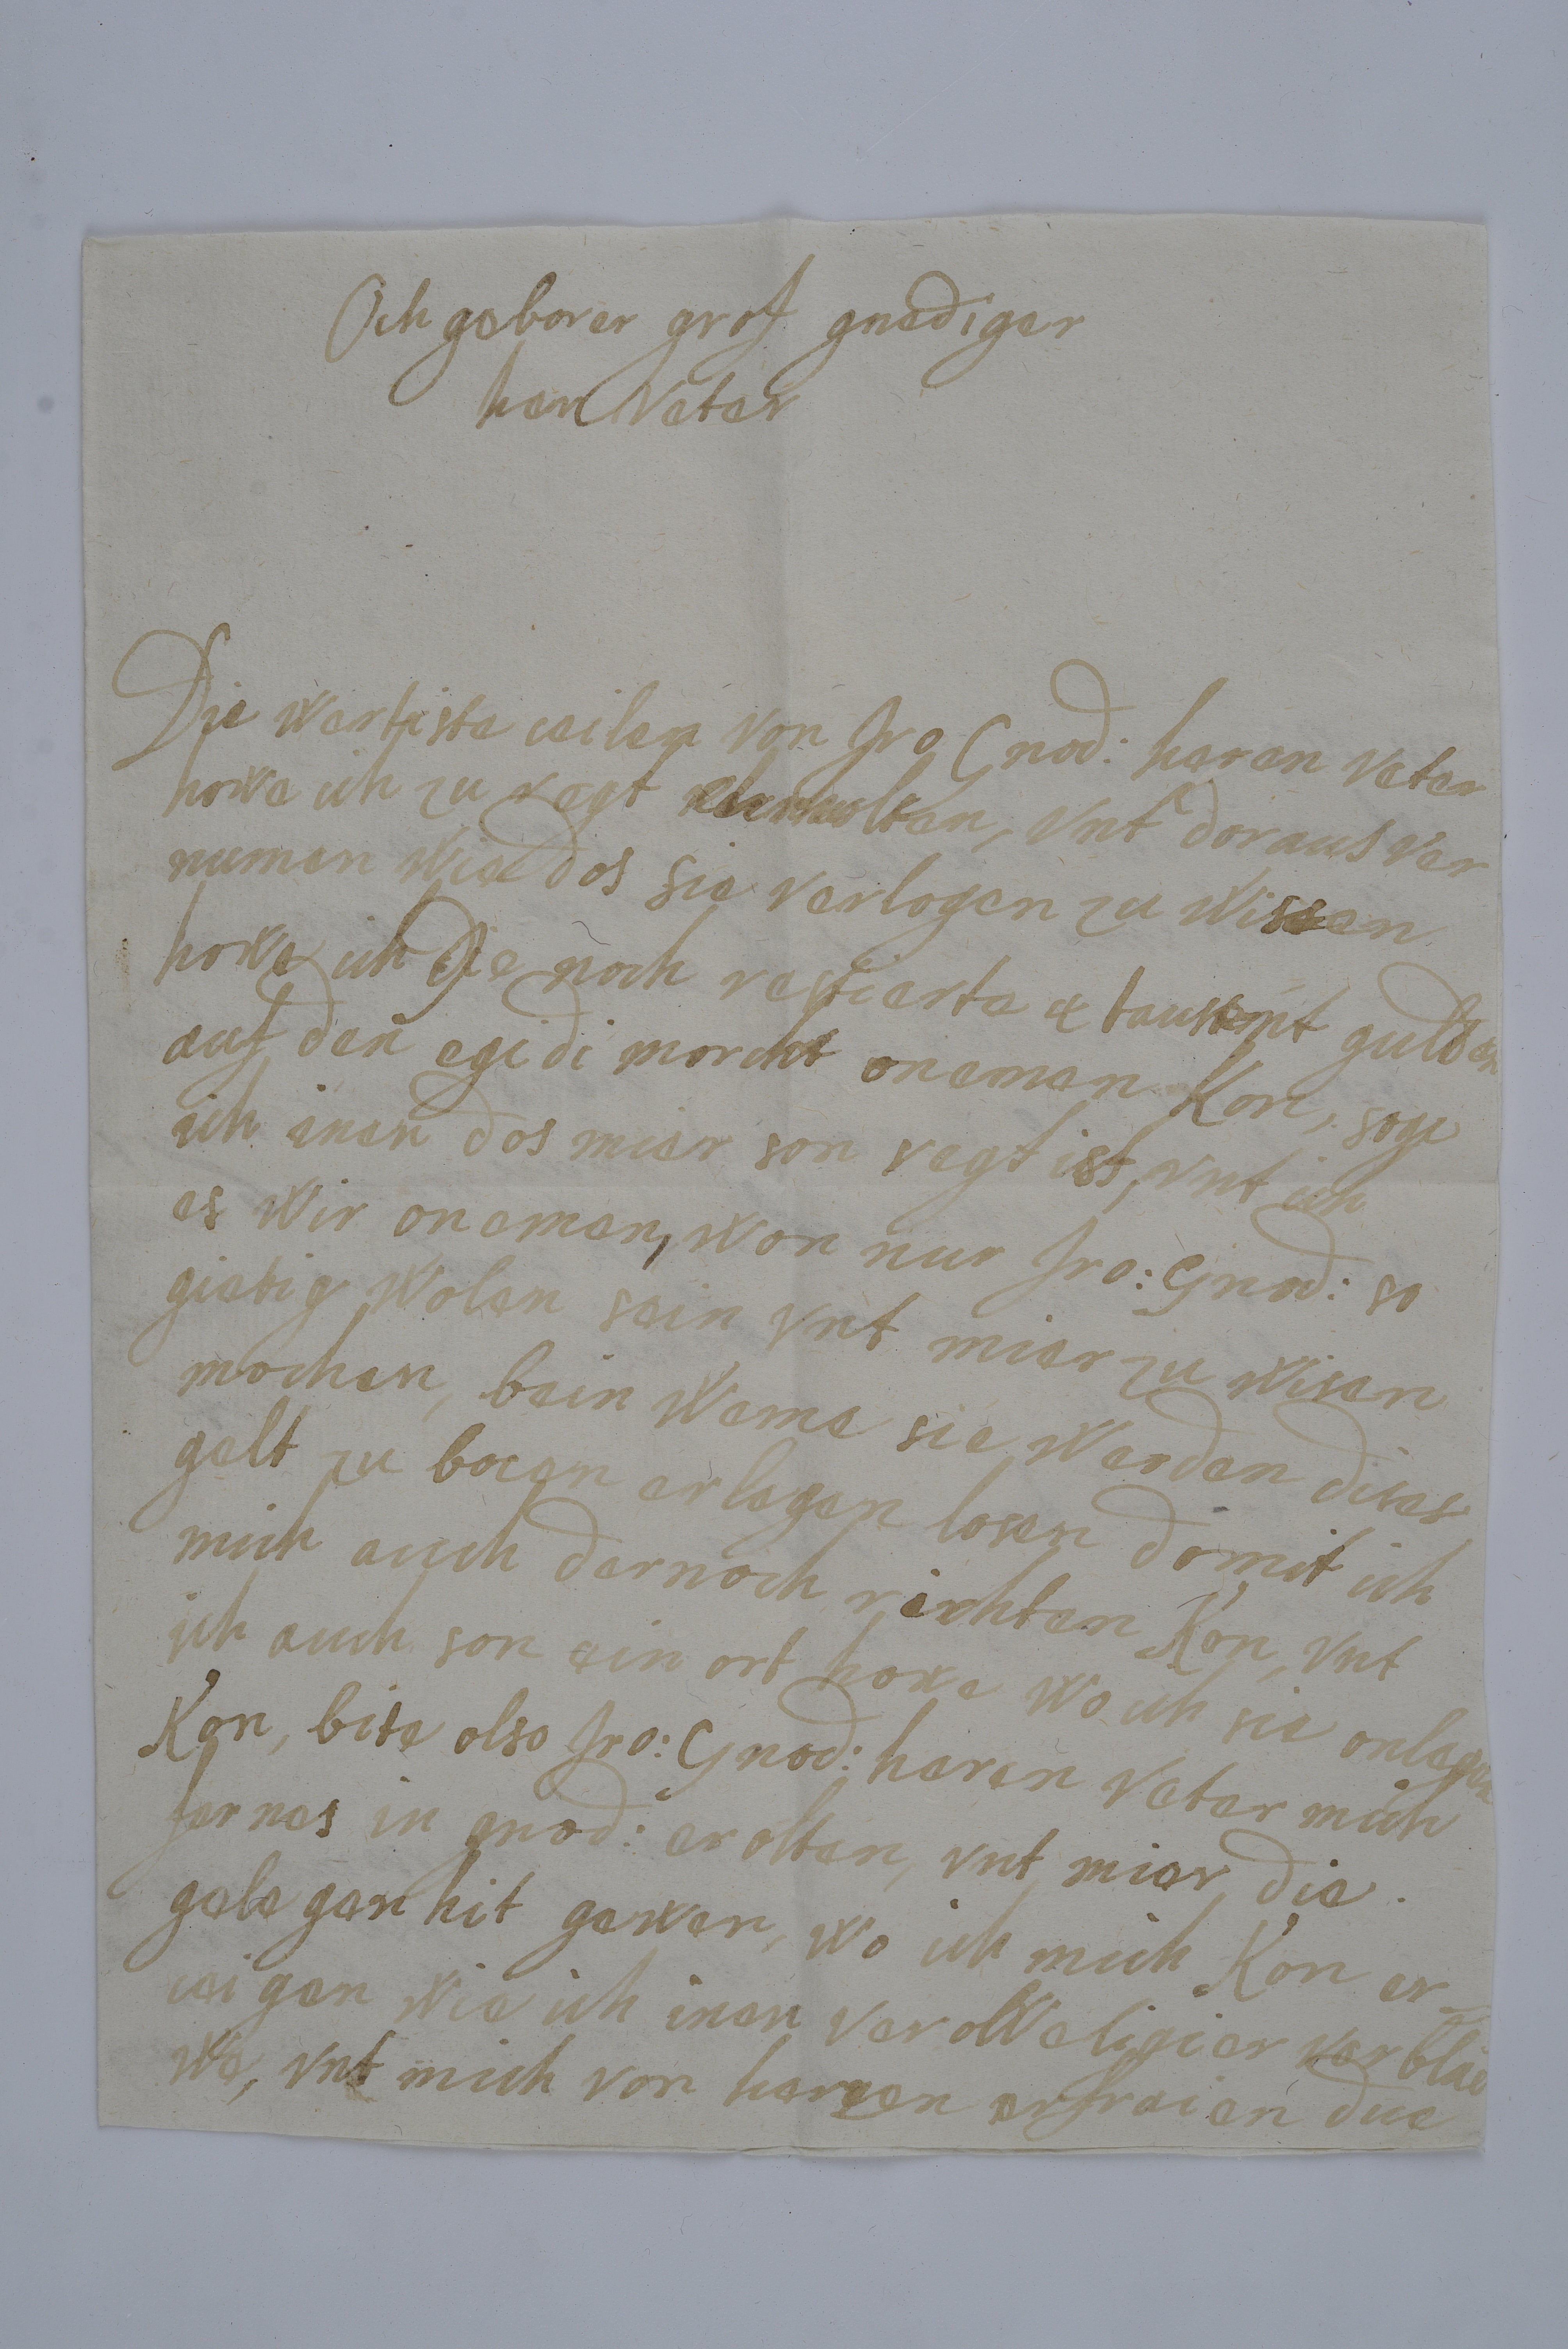 Och geborer grof gnediger
her Veter
Die Wertiste ceilen Von Iro Gnod: heren Veter
howe ich zu regt erholten, Vnt doraus ver
numen Wie dos sie verlogen zu Wissen
howe ich die noch restierte 4 tausent gulden
auf den egidi morckt onemen Kon, soge
ich inen dos mier son regt ist, Vnt ich
es Wir onemen, Won nur Iro: Gnod: so
gietig Wolen sein Vnt mier zu Wisen
mochen, bein Weme sie Werden dises
gelt zu bocen erlegen losen domit ich
mich auch dernoch richten Kon, Vnt
ich auch son ein ort howe Wo ich sie onlegen
Kon, bite olso Iro: Gnod: heren Veter mich
fernes in gnod: erolten, Vnt mier die
gelegenhit gewen, Wo ich mich Kon er-
ceigen Wie ich inen ver oWeligier verblei
We, Vnt mich von hercen erfreien due